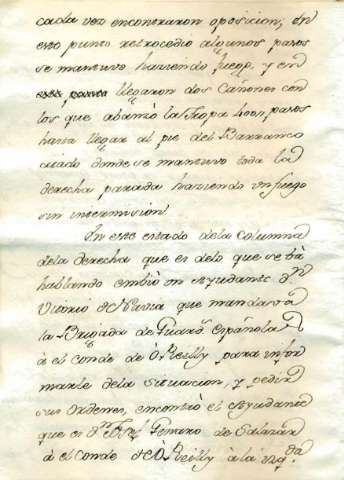 cada vez encontraron oposicion, En
este punto retrocedio algunos pasos
se mantuvo haciendo fuego, y en
llegaron dos Cañones con
los que abanzó la tropa 400 pasos
hasta llegar al pie del Barranco
citado donde se mantuvo toda la
derecha parada haciendo un fuego
sin intermision.
En este estado de la columna
dela derecha que es delo que se bà
hablando embió un Ayudante Dn
Vitorio de Navia que mandava
la Brigada de Guards Española
à el conde de O Reilly para infor
marle dela situacion, y pedir
sus ordenes, encontró el Ayudante
que es Dn Genaro de Salazar
à el conde de O Reilly à la